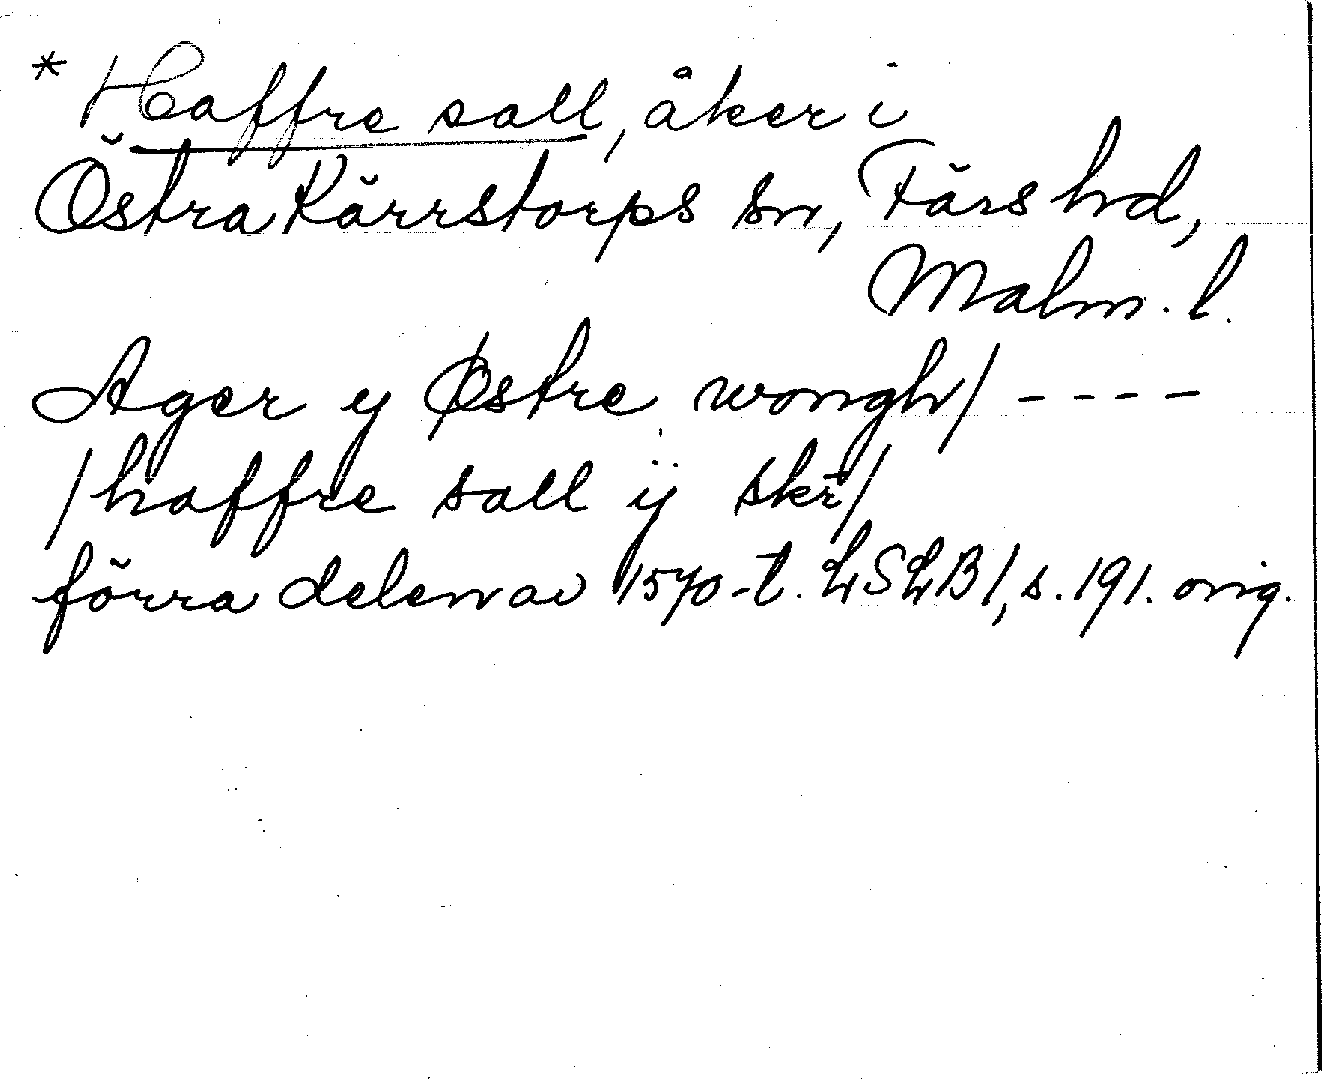 * Haffre sall, åker i
Östra Kärrstorps sn, Färs hd,
Malm. l.
Ager y Østre wongh/ ----
/haffre sall ÿ skr/
förra delen av 1570-t. LSLB 1, s. 191. orig.